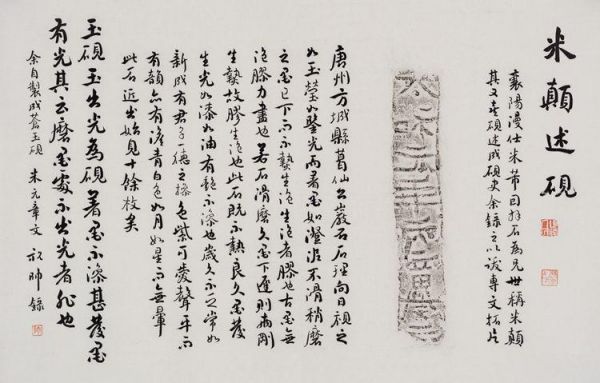 米顛述硯
襄陽漫仕米芾因拜石為兄世稱米顛
其又喜硯述成硯史余錄之以跋專文拓片
唐州方城縣葛仙公巖石石理向日視之
如玉瑩如鑒光而著墨如澄泥不滑稍磨
之墨已下而不熱生泡生泡者膠也古墨無
泡膠力盡也若石滑磨久墨下遲則兩剛
生熱故膠生泡也此石既不熱良久墨發
生光如漆如油有艷不滲也歲久不乏常如
新成有君子一德之操色紫可愛聲平而
有韻亦有澹青白色如月如星而無暈
此石近出始見十餘枚矣
玉硯玉出光為硯著墨不滲甚發墨
有光其云磨墨處不出光者非也
余自製成蒼玉硯 米元章文 祝帥錄